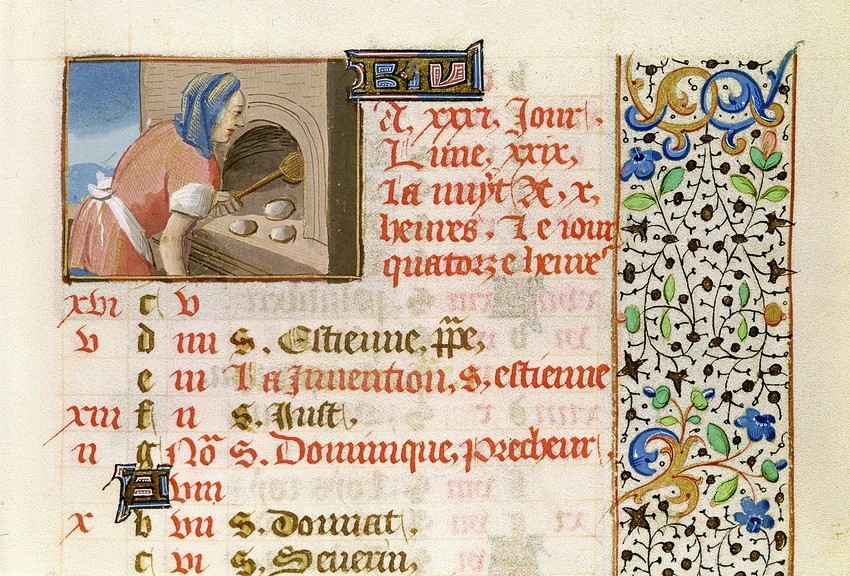 A, xxxi, Jour,
Lune, xxix,
La nuyt A, x,
heures. Le iour
quatorze heure
xvi c v
v d iiii S. Estienne, ppe,
e iii La Invention, S, estienne
xiii f ii S. Just,
ii g No S. Dominique, precheur,
A viii
x b vii S. Donnat,
c vi S. Severin,